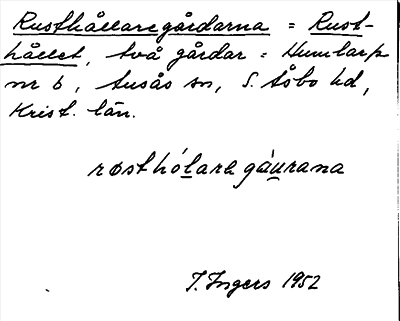 Rusthållaregårdarna = Rust-
hållet, två gårdar = Humlarp
nr 6, Ausås sn, S. Åsbo hd,
Krist. län.
røsthólare gàurana
I. Ingers 1952